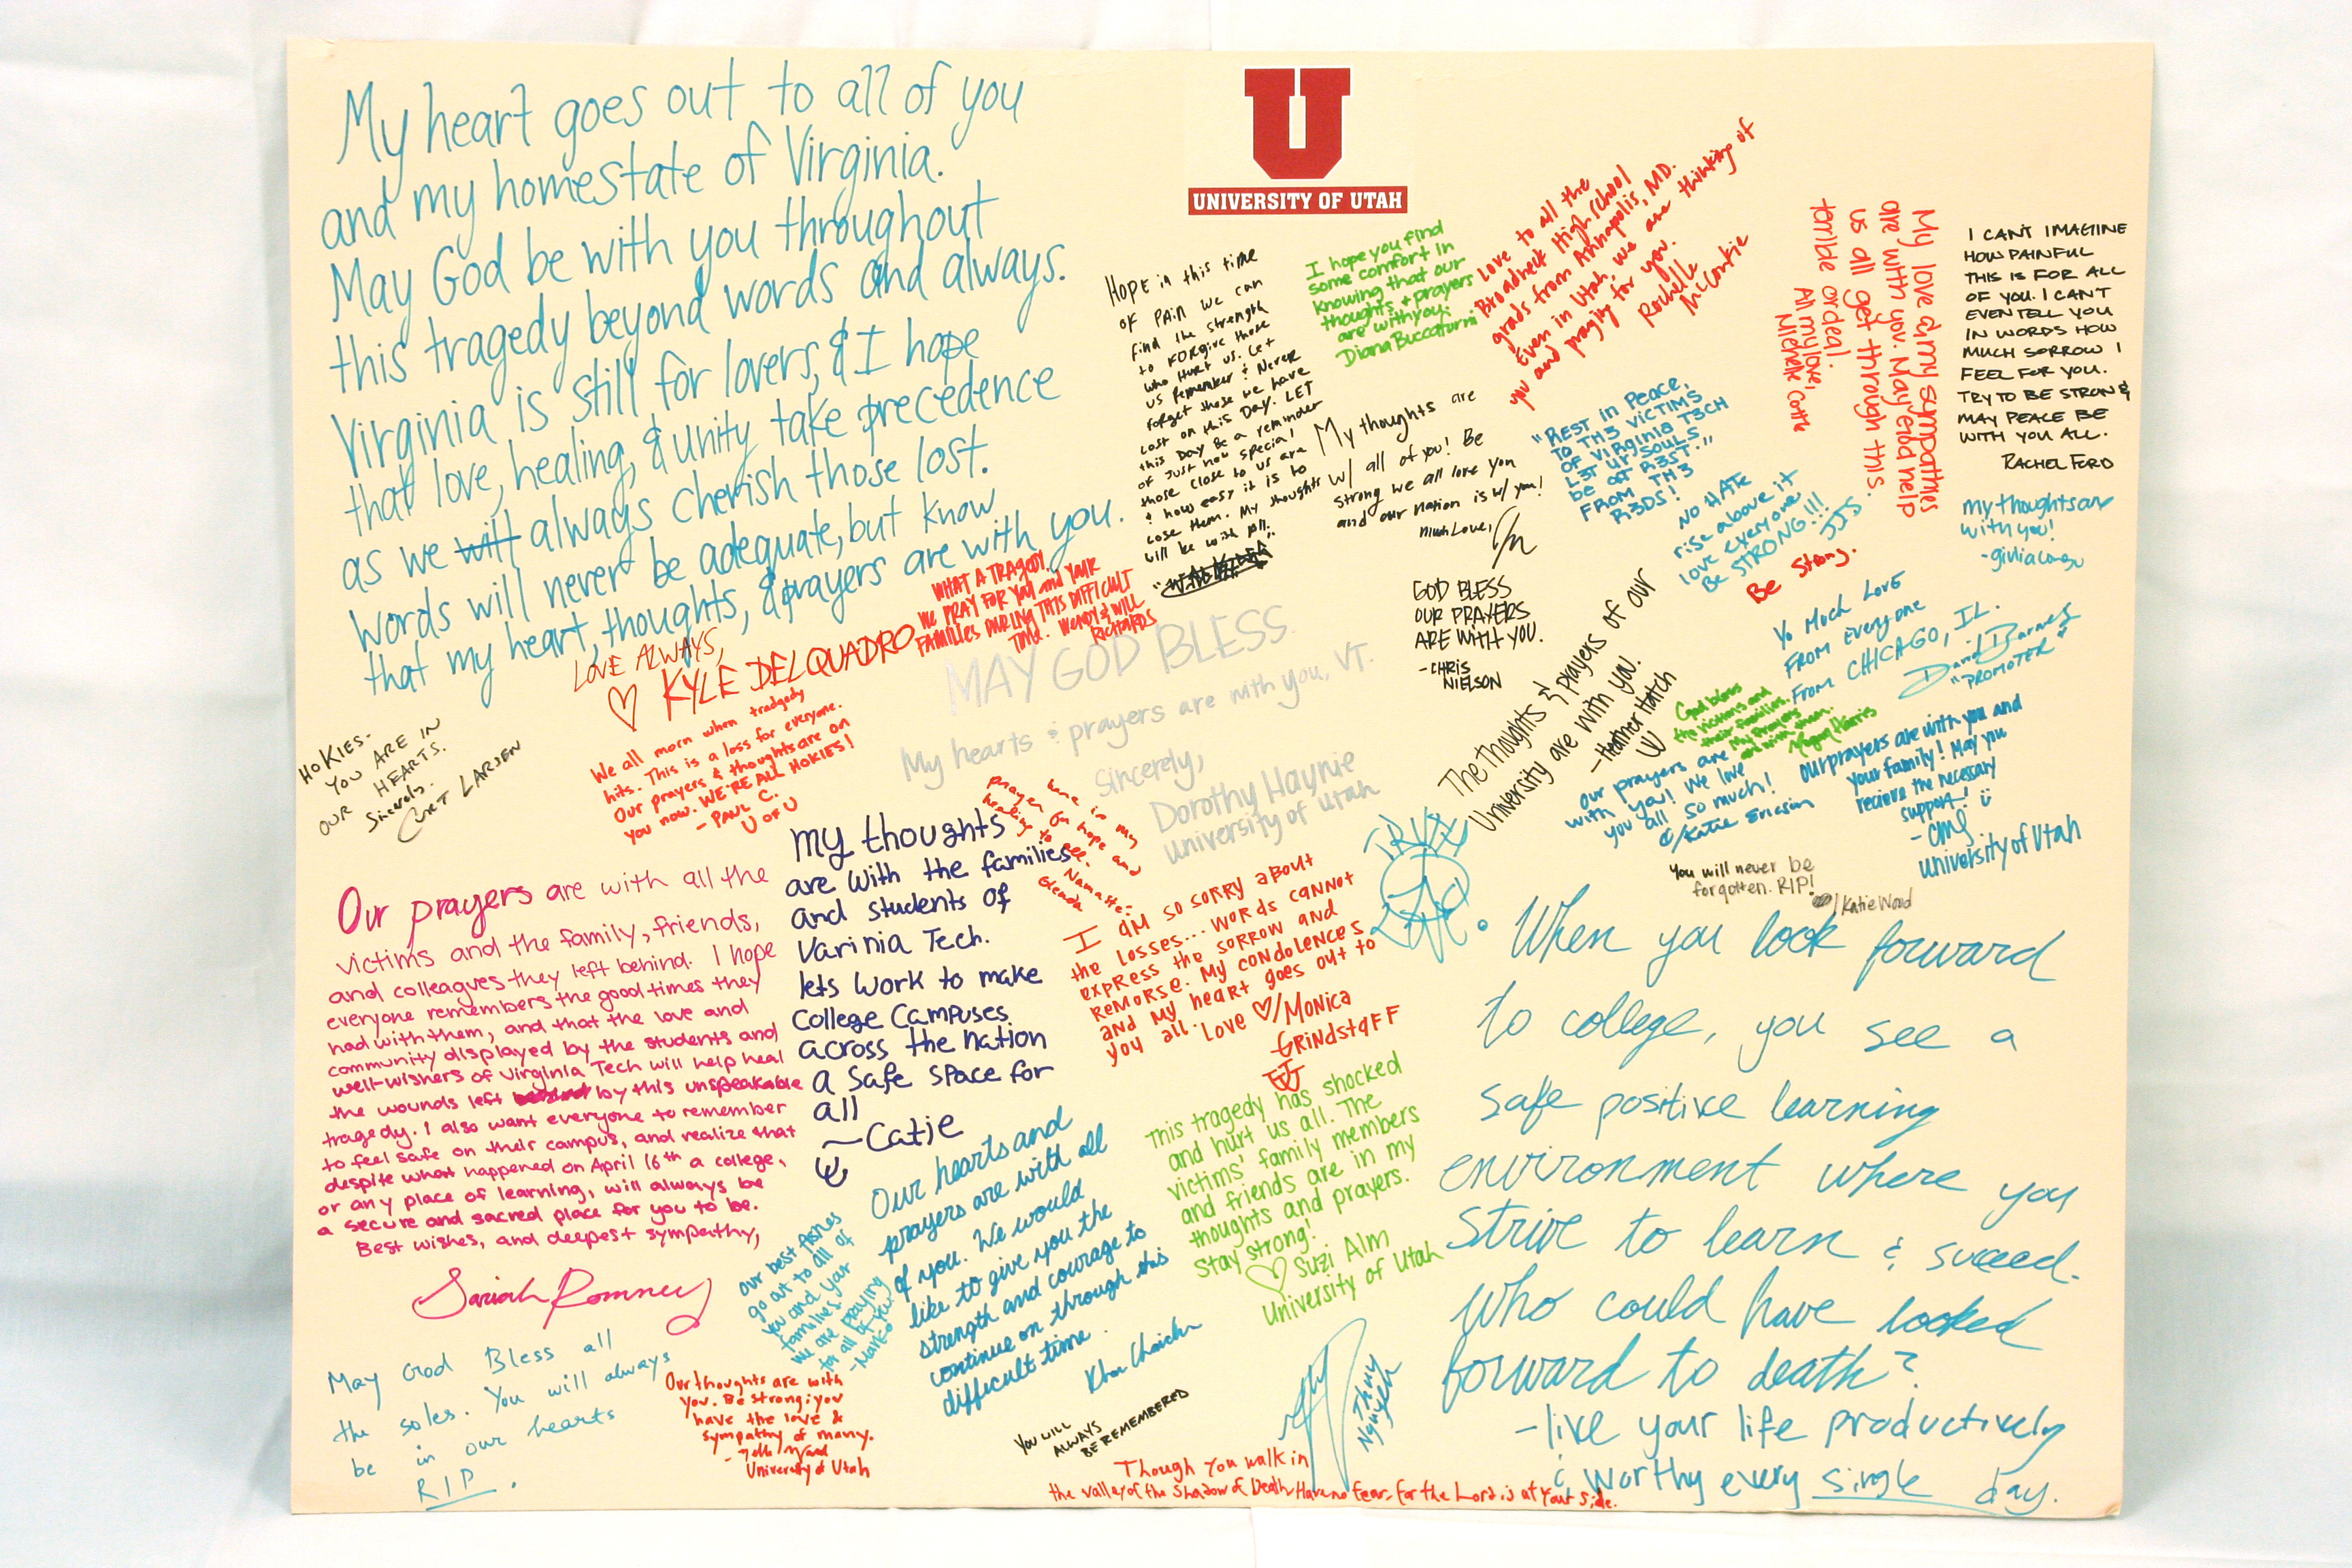 My heart goes out to all of you
and my homestate of Virginia.
May God be with you throughout
this tragedy beyond words and always.
Virginia is still for lovers, & I hope
that love, healing, & unity take precedence
as we will always cherish those lost.
Words will never be adequate, but know
that my heart, thoughts, & prayers are with you.
LOVE ALWAYS,
♡ KYLE DELQUADRO
U
UNIVERSITY OF UTAH
HOPE in this time
OF PAIN we can
find the strength
to FORgive those
who Hurt us. Let
us Remember & Never
forget those we have
Lost on this Day. LET
this Day Be a reminder
of Just how special
those close to us are
& how easy it is to
Lose them. My thoughts
will be with All.
I hope you find
some comfort in
knowing that our
thoughts + prayers
are with you.
Diana Buccafurni
Love to all the
Broadneck High School
grads from Annapolis, MD.
Even in Utah, we are thinking of
you and praying for you.
Rochelle
McConkie
My love & my sympathies
are with you. May God help
us all get through this
terible ordeal.
All my love,
Michelle Cottle
I CANT IMAGINE
HOW PAINFUL
THIS IS FOR ALL
OF YOU. I CAN'T
EVEN TELL YOU
IN WORDS HOW
MUCH SORROW I
FEEL FOR YOU.
TRY TO BE STRONG
MAY PEACE BE
WITH YOU ALL.
RACHEL FORD
My thoughts are
w/ all of you! Be
strong we all love you
and our nation is w/ you!
much Love,
"REST in Peace,
TO TH3 VICTIMS
OF VIRginia T3CH
L3T Ur SOULS
be at R3ST..."
FROM TH3
R3DS!
NO HATE
rise above it
love everyone
Be STRONG!!!
JJS.
Be Strong.
my thoughts are
with you!
WHAT A TRAGEDY.
WE PRAY FOR YOU and YOUR
FAMILIES DURING THIS DIFFICULT
TIME. WENDY & WILL
RICHARDS
MAY GOD BLESS.
My hearts & prayers are with you, VT.
Sincerely,
Dorothy Haynie
university of utah
GOD BLESS
OUR PRAYERS
ARE WITH YOU.
-CHRIS
NIELSON
The thoughts & prayers of our
University are with you.
-Heather Hatch
U
Yo Much Love
From Everyone
From CHICAGO, IL.
David Barnes
"PROMOTER"
God bless
the victims and
their families.
My prayers
are with them.
HOKIES-
YOU ARE IN
OUR HEARTS.
Sincerely,
CURT LARSEN
We all morn when tradgedy
hits. This is a loss for everyone.
Our prayers & thoughts are on
you now. WE'RE ALL HOKIES!
- PAUL C.
U of U
our prayers are
with you! We love
you all so much!
Katie Ericson
Our prayers are with you and
your family! May you
recieve the necessary
support!
University of Utah
You will never be
forgotten. RIP!
/Katie Wood
Our prayers are with all the
victims and the family, friends,
and colleagues they left behind. I hope
everyone remembers the good times they
had with them, and that the love and
community displayed by the students and
well-wishers of Virginia Tech will help heal
the wounds left by this unspeakable
tragedy. I also want everyone to remember
to feel safe on their campus, and realize that
despite what happened on April 16th a college,
or any place of learning, will always be
a secure and sacred place for you to be.
Best wishes, and deepest sympathy,
Sariah Romney
my thoughts
are with the families
and students of
Varinia Tech.
lets work to make
College Campuses
across the nation
a safe space for
all
~Catie
U
prayer for hope and
healing to all.
Namaste.
I am so sorry about
the losses... words cannot
express the sorrow and
remorse. My condolences
and my heart goes out to
you all. Love ♡/Monica
Grindstaff
U
When you look forward
to college, you see a
safe positive learning
environment where you
strive to learn & succeed.
Who could have looked
forward to death?
-live your life productively
& worthy every single day.
This tragedy has shocked
and hurt us all. The
victims' family members
and friends are in my
thoughts and prayers.
Stay strong!
♡ Suzi Alm
University of Utah
Our hearts and
prayers are with all
of you. We would
like to give you the
strength and courage to
continue on through this
difficult time.
our best wishes
go out to all of
you and your
families.
We are praying
for all of you.
May God Bless all
the soles. You will always
be in our hearts
RIP.
Our thoughts are with
you. Be strong; you
have the love &
sympathy of many.
University of Utah
You will
ALWAYS
BE REMEMBERED
Thuy
Nguyen
Though you walk in
the valley of the Shadow of Death, Have no fear, for the Lord is at your side.